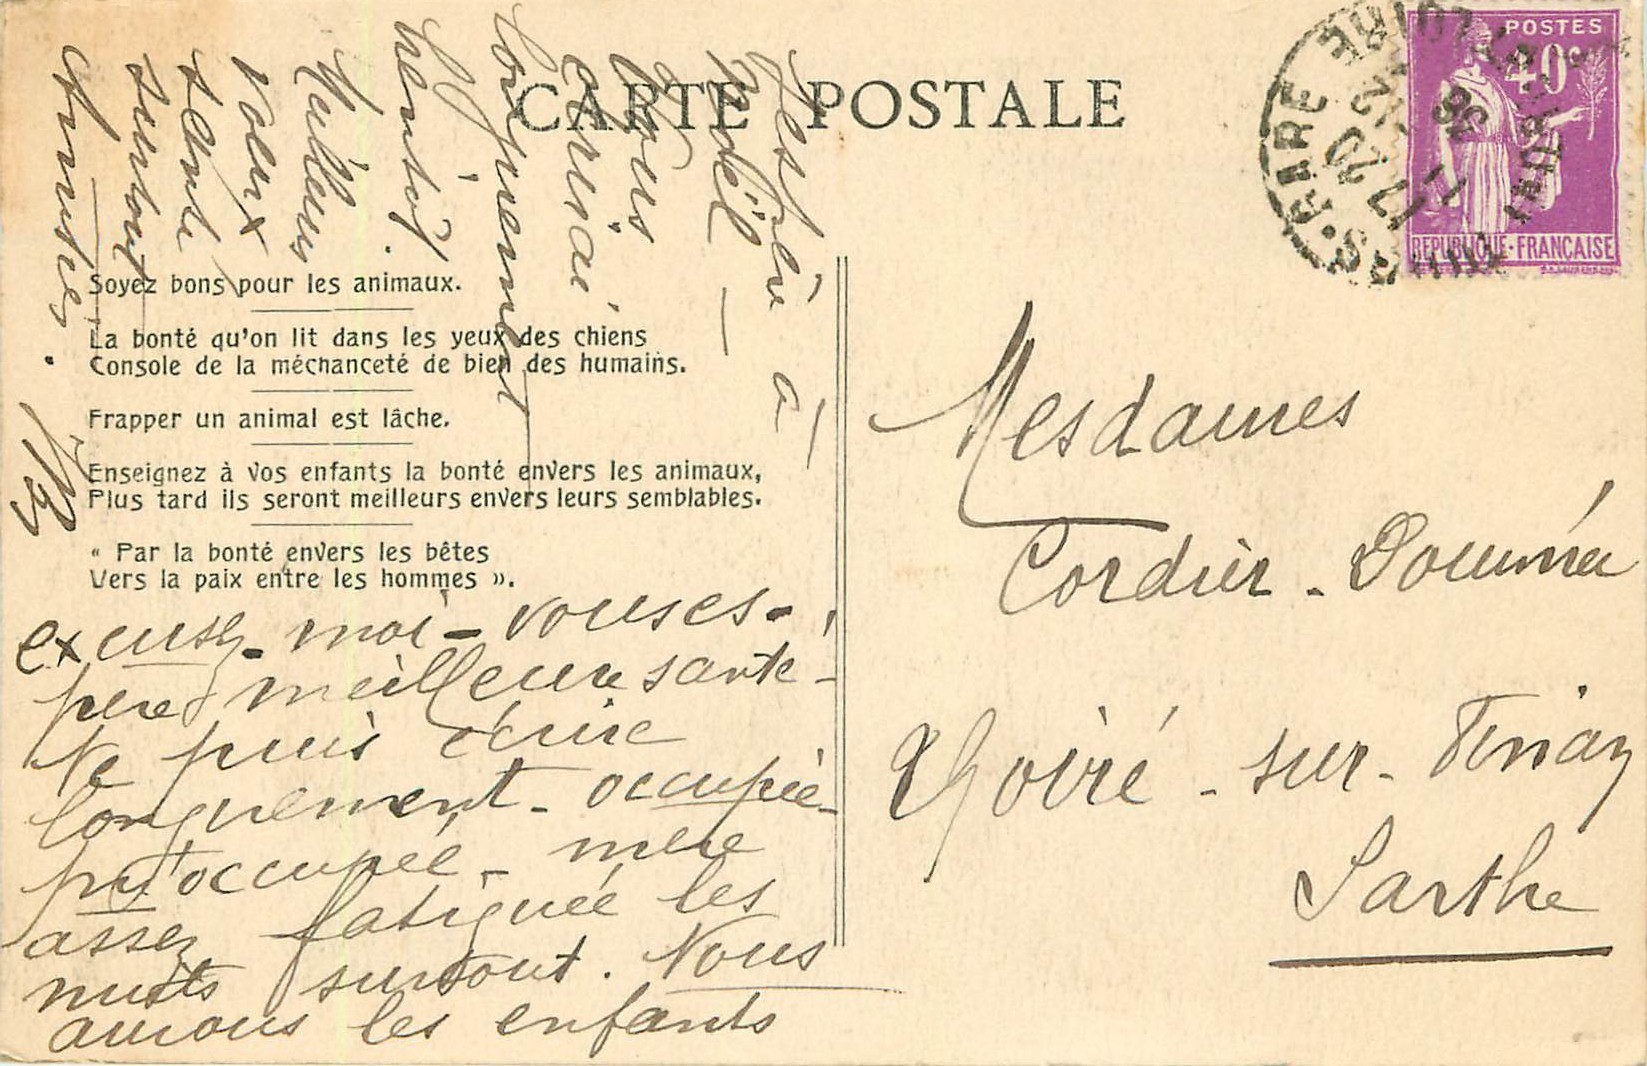 CARTE POSTALE
POSTES
40 c
REPUBLIQUE · FRANÇAISE
GARE
LOIRE
17 20
36
Soyez bons pour les animaux.
La bonté qu'on lit dans les yeux des chiens
Console de la méchanceté de bien des humains.
Frapper un animal est lâche.
Enseignez à vos enfants la bonté envers les animaux,
Plus tard ils seront meilleurs envers leurs semblables.
« Par la bonté envers les bêtes
Vers la paix entre les hommes ».
excusez-moi - vous es-
père meilleure santé -
Ne puis écrire
longuement - occupée -
préoccupée - mère
assez fatiguée les
nuits surtout. Nous
aurons les enfants
à
Noël —
Vous
écrirai
longuement
bientôt.
Meilleurs
voeux
santé
surtout
Amitiés.
Mesdames
Cordier - Doumér
Thoiré - sur - Dinan
Sarthe